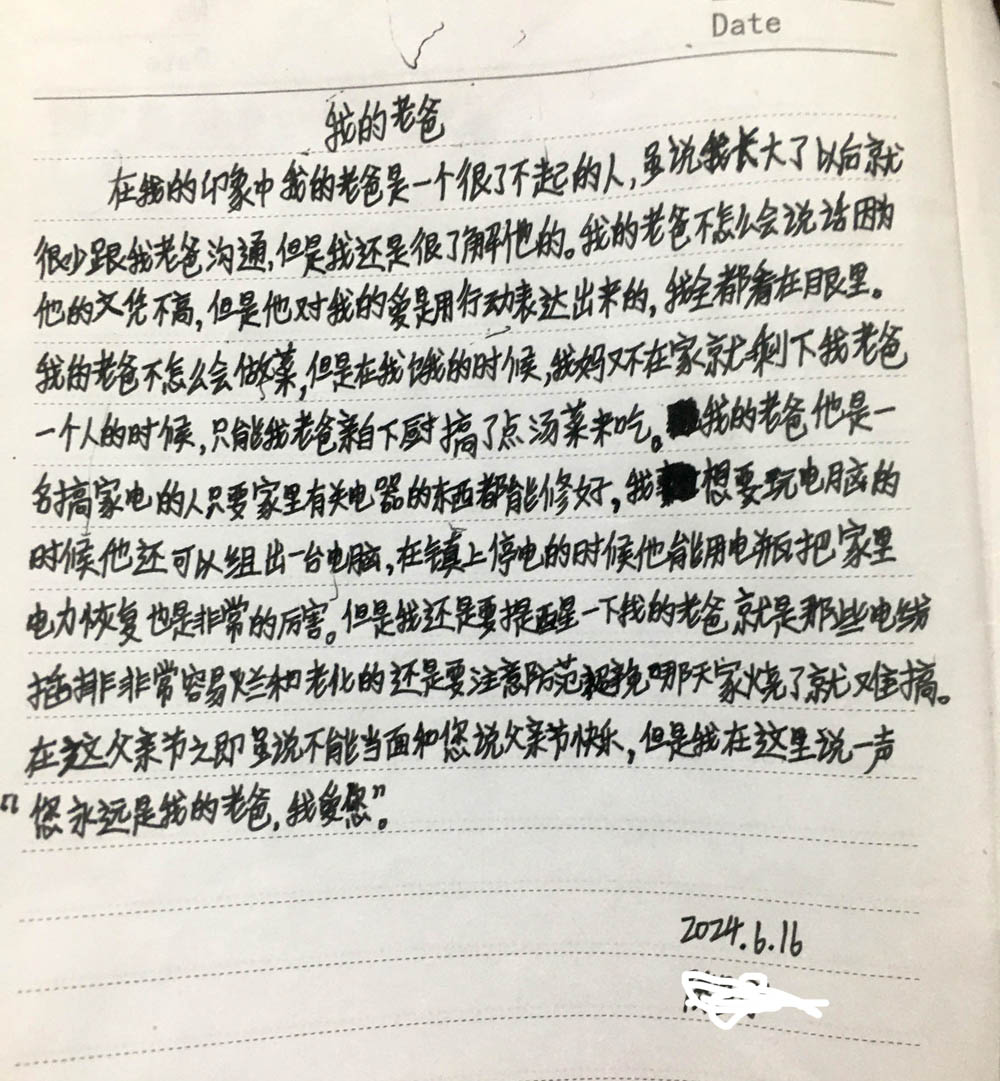 Date
我的老爸
在我的印象中我的老爸是一个很了不起的人,虽说我长大了以后就
很少跟我老爸沟通,但是我还是很了解他的。我的老爸不怎么会说话因为
他的文凭不高,但是他对我的爱是用行动表达出来的,我全都看在眼里。
我的老爸不怎么会做菜,但是在我饿的时候,我妈又不在家就剩下我老爸
一个人的时候,只能我老爸亲自下厨搞了点汤菜来吃。我的老爸他是一
名搞家电的人只要家里有关电器的东西都能修好,我想要玩电脑的
时候他还可以组出一台电脑,在镇上停电的时候他能用电瓶把家里
电力恢复也是非常的厉害。但是我还是要提醒一下我的老爸就是那些电线
插排非常容易烂和老化的还是要注意防范避免哪天家烧了就难搞。
在这父亲节之即虽说不能当面和您说父亲节快乐,但是我在这里说一声
“您永远是我的老爸,我爱您”。
2024.6.16